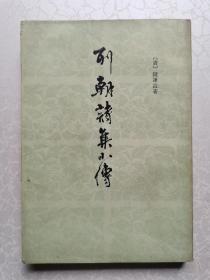 列朝詩集小傳
〔清〕錢謙益著